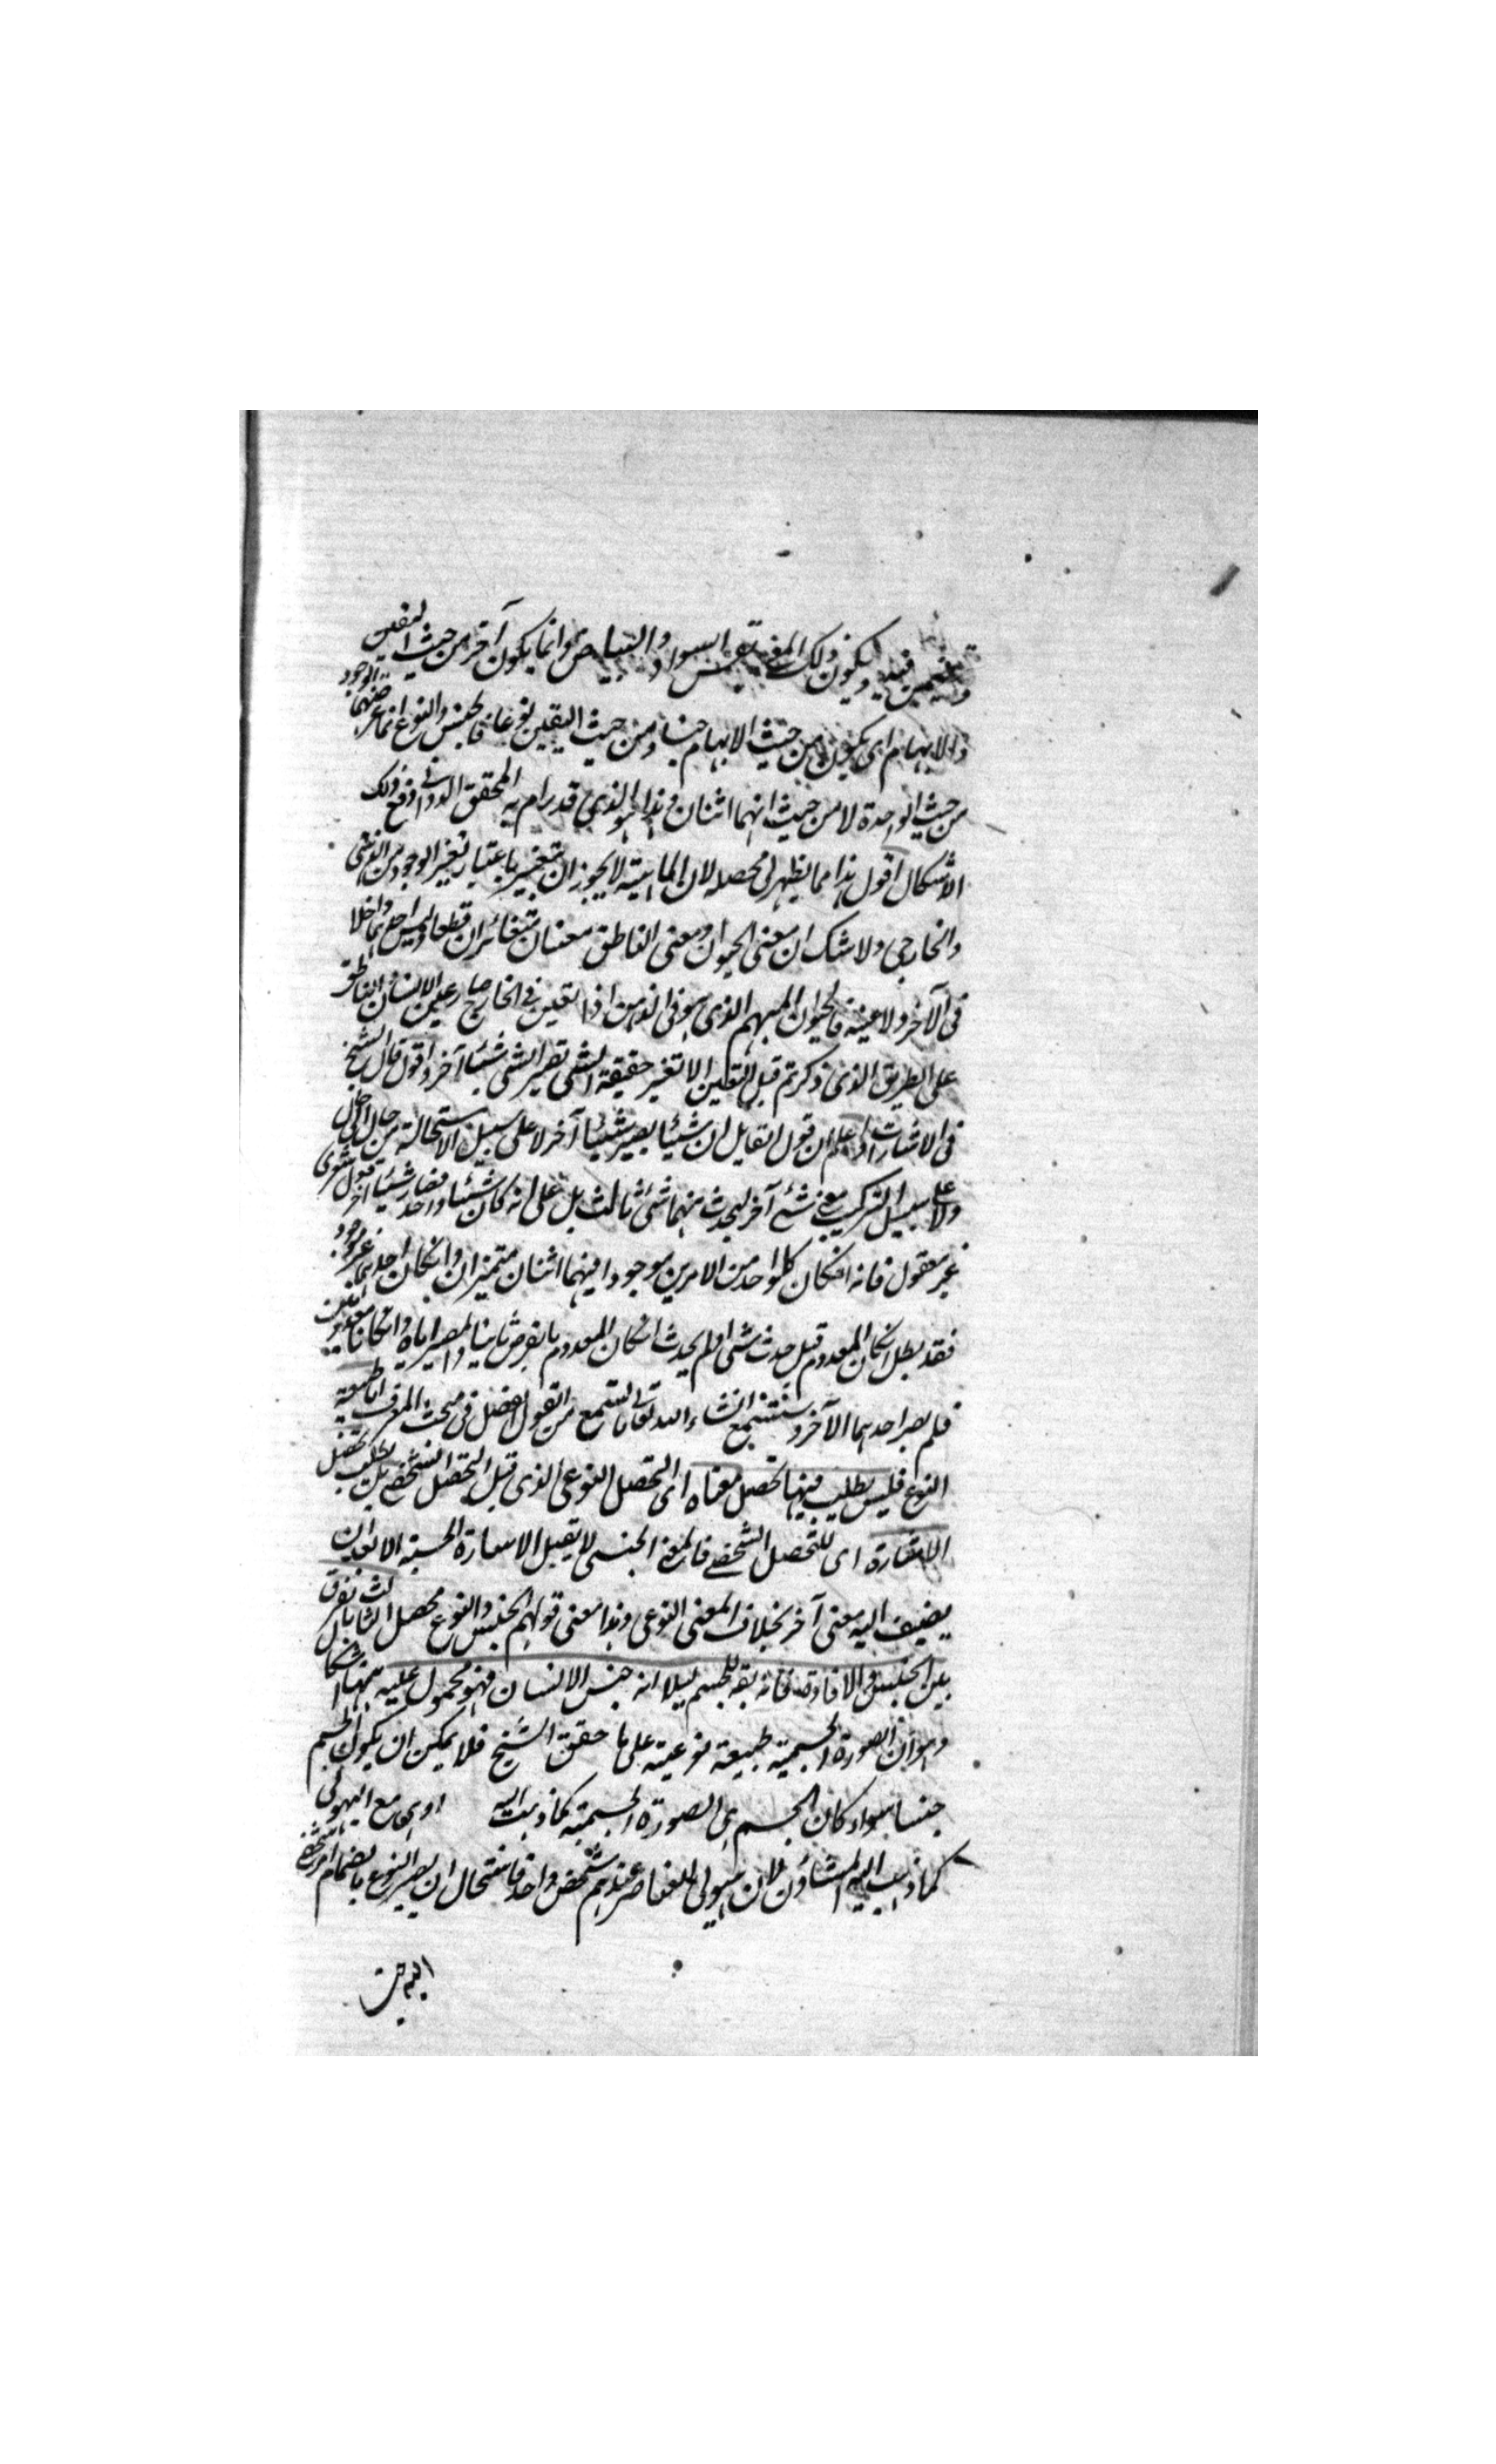 وتعين فيه ويكون ذلك المعنى نفس السواد والبياض وانما يكون آخر من حيث التعين
والابهام اى يكون من حيث الابهام جنسا ومن حيث التعين نوعا فالجنس والنوع انما عرضهما الوجود
من حيث الواحدة لا من حيث انهما اثنان وهذا هو الذى قد رام به المحقق الدوانى دفع ذلك
الاشكال اقول هذا مما يظهر لى محصله لان الماهية لا يجوز ان تتغير باعتبار تغير الوجود من الذهنى
والخارجى ولا شك ان معنى الحيوان ومعنى الناطق معنيان متغائران قطعا وليس احدهما داخلا
فى الآخر ولا عينه فالحيوان المبهم الذى هو فى الذهن اذا تعين فى الخارج صار عين الانسان والناطق
على الطريق الذى ذكرتم قبل التعين الا تغير حقيقة الشى تصير الشى شيئا آخر واقول قال الشيخ
فى الاشارات اعلم ان قول القايل ان شيئا يصير شيئا آخر لا على سبيل الاستحالة من حال الى حال
ولا على سبيل التركيب مع شئ آخر ليحدث منهما شئ ثالث بل على انه كان شيئا واحدا فصار شيئا آخر قول شعرى
غير معقول فانه ان كان كل واحد من الامرين موجودا فيهما اثنان متميزان وان كان احدهما غير موجود
فقد بطل ان كان المعدوم قبل حدث شى او لم يحدث ان كان المعدوم بالفرض ثانيا والمصير اياه وان كانا معدومين
فلم يصر احدهما الآخر وستسمع انشاء الله تعالى ما تسمع من القول المفصل فى مبحث المعرف اما طبيعة
النوع فليس يطلب فيها تحصل معناه اى التحصل النوعى الذى قبل التحصل الشخصى بل يطلب تحصل
الاشارة اى للتحصل الشخصى فالمعنى الجنسى لا يقبل الاشارة الحسية الا بعد ان
يضيف اليه معنى آخر بخلاف المعنى النوعى وهذا معنى قولهم الجنس والنوع محصل الثالث ما الفرق
بين الجنس والمادة فانه يقال للجسم مثلا انه جنس الانسان فهو محمول عليه ههنا اشكال
وهو ان الصورة الجسمية طبيعة نوعية على ما حقق الشيخ فلا يمكن ان يكون الجسم
جنسا سواء كان الجسم هى الصورة الجسمية كما ذهبت اليه او هى مع الهيولى
كما ذهب اليه المشاؤن لان هيولى العناصر عندهم شخص واحد فاستحال ان يصير النوع بانضمام امر شخصى
اليه جنسا